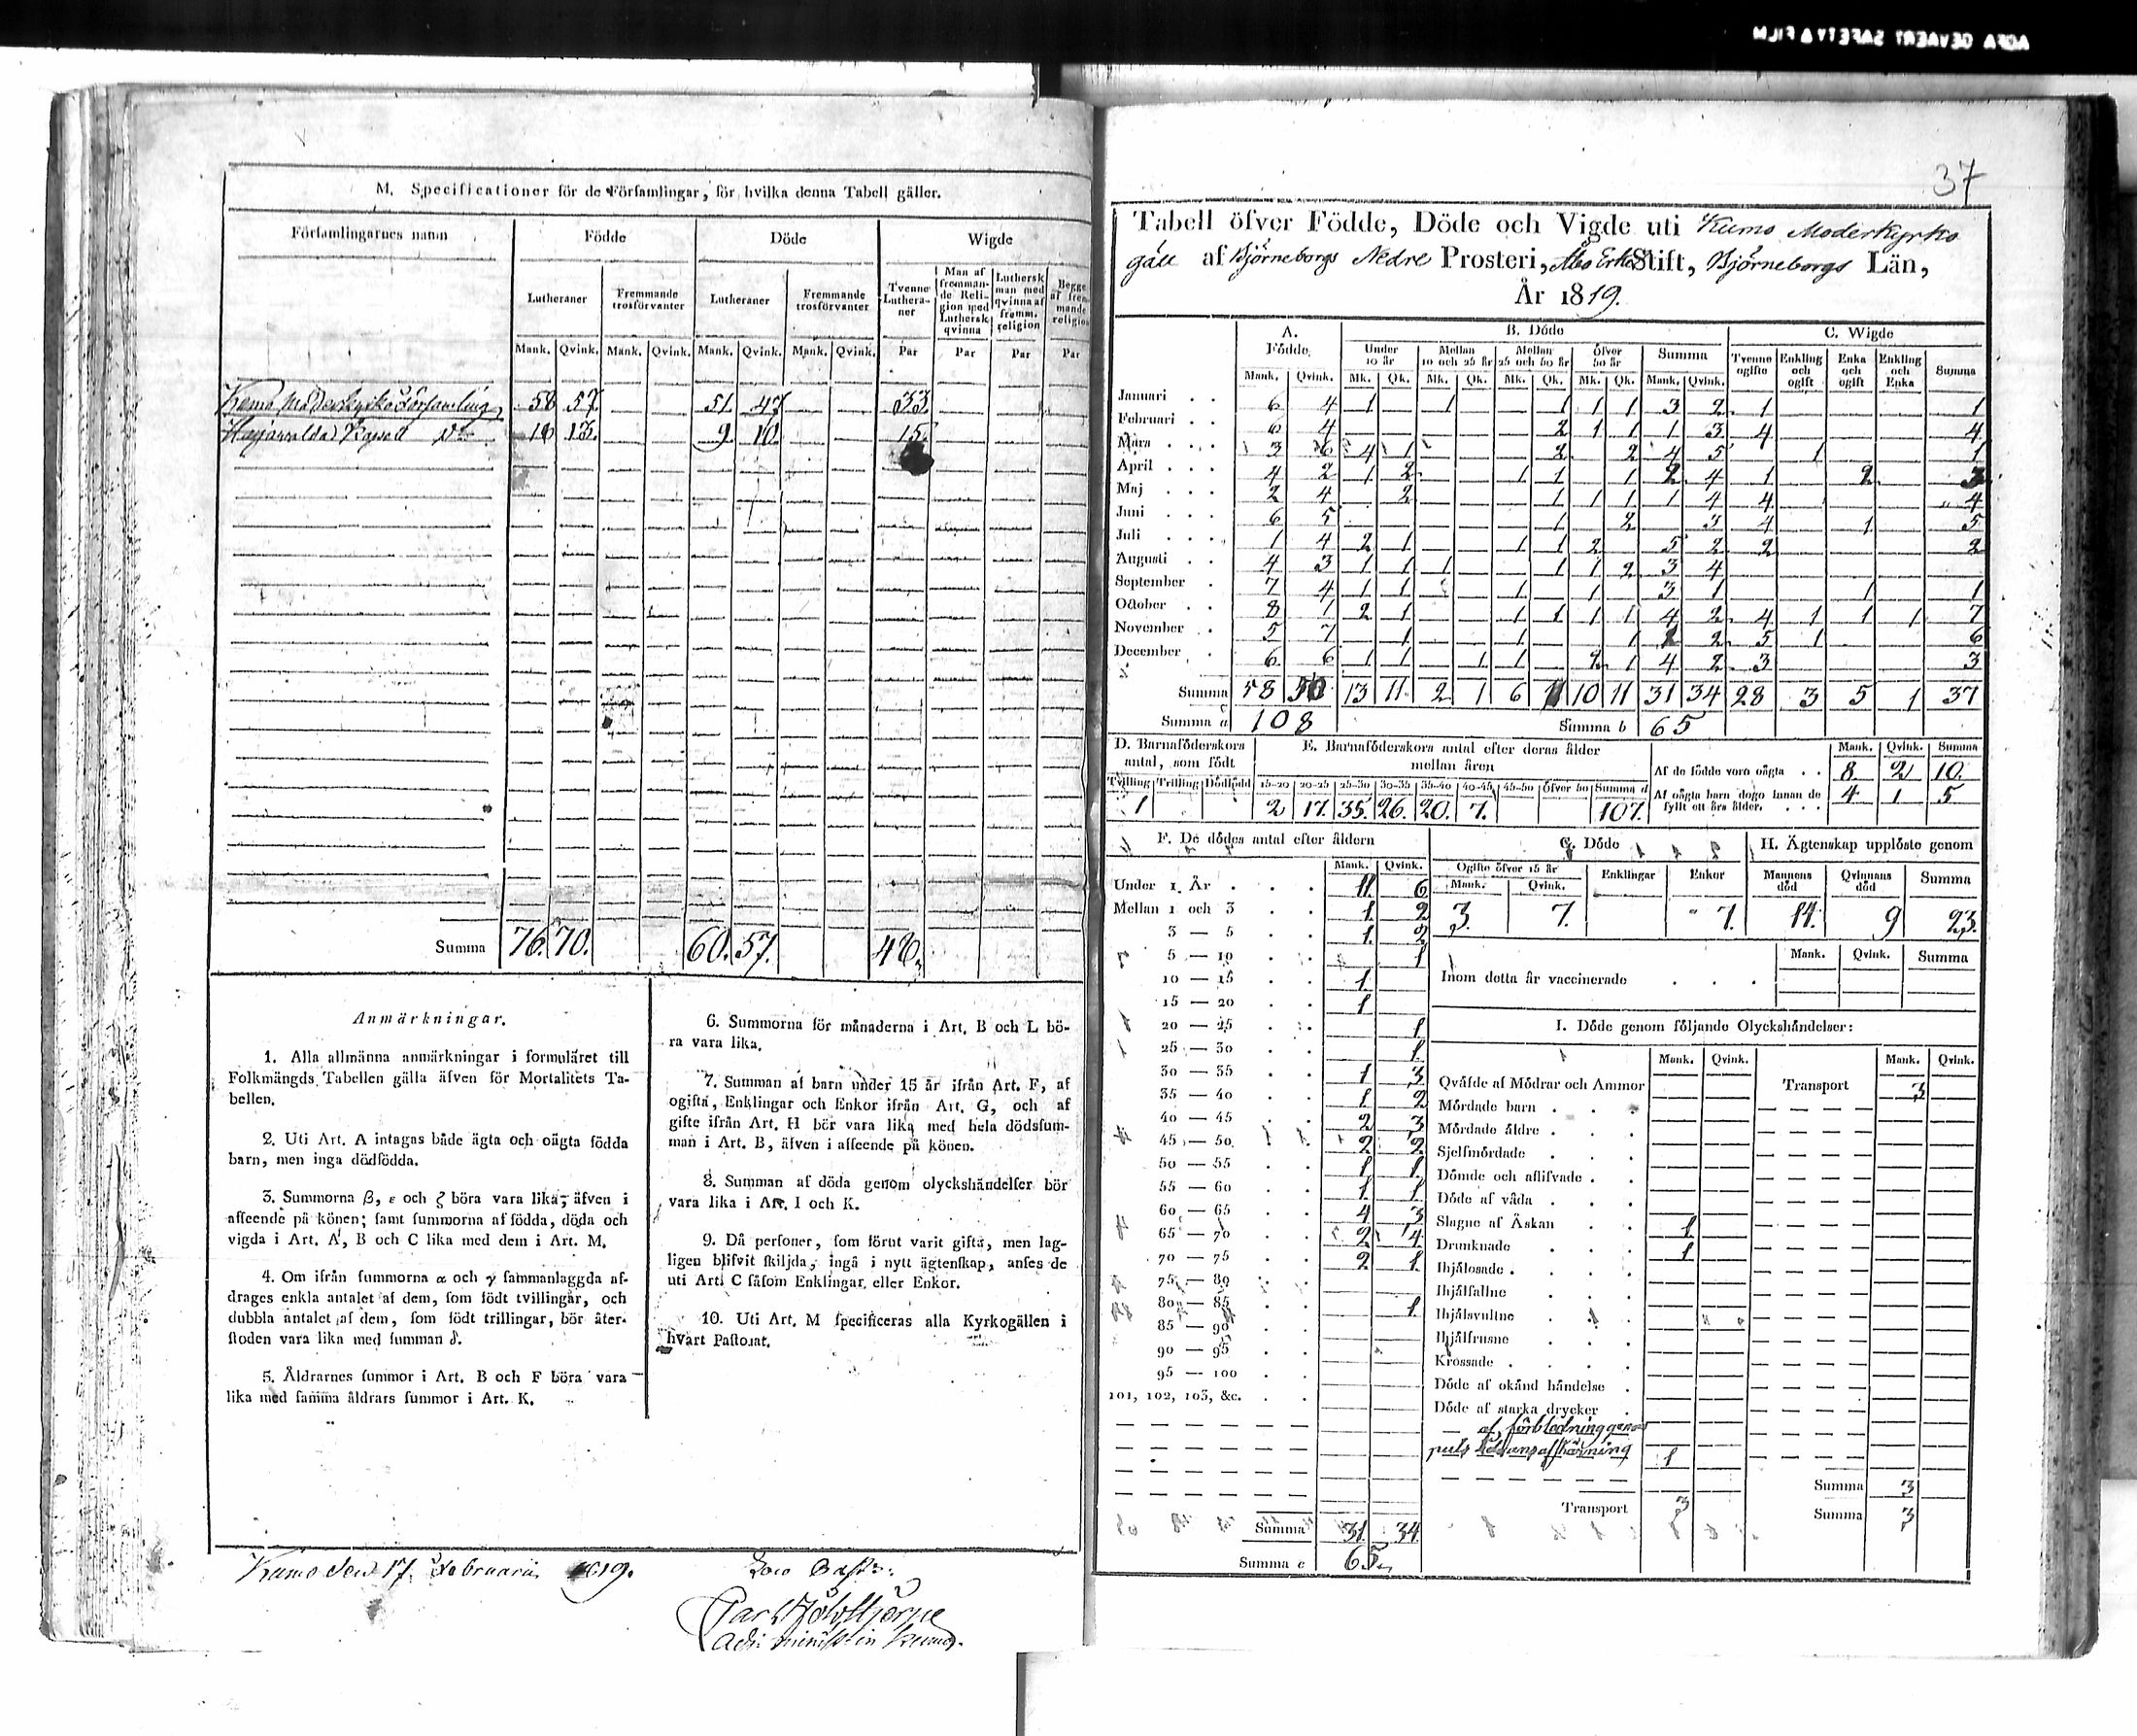 37
M. Specificationer för de Församlingar, för hvilka denna Tabell gäller.
Församlingarnes namn Födde Döde Wigde
Lutheraner Fremmande trosförvanter Lutheraner Fremmande trosförvanter Tvenne Lutheraner Man af fremmande Religion med Luthersk qvinna Luthersk man med qvinna af fremm. religion Begge af fremmande religion
Mank. Qvink. Mank. Qvink. Mank. Qvink. Mank. Qvink. Par Par Par Par
Kumo Moderkyrko Församling 58 57 51 47 33
Harjavalda Kapell 18 13 9 10 15
Summa 76. 70. 60. 57. 48.
Anmärkningar.
1. Alla allmänna anmärkningar i formuläret till
Folkmängds Tabellen gälla äfven för Mortalitets Ta-
bellen.
2. Uti Art. A intagas både ägta och oägta födda
barn, men inga dödfödda.
3. Summorna β, ε och ζ böra vara lika, äfven i
afseende på könen; samt summorna af födda, döda och
vigda i Art. A, B och C lika med dem i Art. M.
4. Om ifrån summorna α och γ sammanlaggda af-
drages enkla antalet af dem, som födt tvillingar, och
dubbla antalet af dem, som födt trillingar, bör åter-
stoden vara lika med summan δ.
5. Åldrarnes summor i Art. B och F böra vara
lika med samma åldrars summor i Art. K.
6. Summorna för månaderna i Art. B och L bö-
ra vara lika.
7. Summan af barn under 15 år ifrån Art. F, af
ogifta, Enklingar och Enkor ifrån Art. G, och af
gifte ifrån Art. H bör vara lika med hela dödssum-
man i Art. B, äfven i afseende på könen.
8. Summan af döda genom olyckshändelser bör
vara lika i Art. I och K.
9. Då personer, som förut varit gifta, men lag-
ligen blifvit skiljda, ingå i nytt ägtenskap, anses de
uti Art. C såsom Enklingar eller Enkor.
10. Uti Art. M specificeras alla Kyrkogällen i
hvart Pastorat.
Kumo den 17 Februarii 1819.
Loco Past:
Tabell öfver Födde, Döde och Vigde uti Kumo Moderkyrko
gäll af Björneborgs Nedre Prosteri, Åbo Erke Stift, Björneborgs Län,
År 1819.
A. Födde B. Döde C. Wigde
Under 10 år Mellan 10 och 25 år Mellan 25 och 50 år Öfver 50 år Summa Tvenne ogifte Enkling och ogift Enka och ogift Enkling och Enka Summa
Mank. Qvink. Mk. Qk. Mk. Qk. Mk. Qk. Mk. Qk. Mank. Qvink.
Januari 6 4 1 1 1 1 1 3 2 1 1
Februari 6 4 2 1 1 1 3 4 4
Mars 3 6 4 1 2 2 4 5 1 1
April 4 2 1 2 1 1 1 2 4 1 2 3
Maj 2 4 2 1 1 1 1 4 4 4
Juni 6 5 1 2 3 4 1 5
Juli 1 4 2 1 1 1 2 5 2 2 2
Augusti 4 3 1 1 1 1 1 2 3 4
September 7 4 1 1 1 1 3 1 1 1
October 8 1 2 1 1 1 1 1 4 2 4 1 1 1 7
November 5 7 1 1 1 1 2 5 1 6
December 6 6 1 1 1 1 2 1 4 2 3 3
Summa 58 50 13 11 2 1 6 11 10 11 31 34 28 3 5 1 37
Summa a 108 Summa b 65
D. Barnaföderskors antal, som födt E. Barnaföderskors antal efter deras ålder mellan åren
Mank. Qvink. Summa
Af de födde voro oägta 8 2 10.
Af oägta barn dogo innan de fyllt ett års ålder. 4 1 5
Tvilling Trilling Dödfödd 15-20 20-25 25-30 30-35 35-40 40-45 45-50 öfver 50 Summa d
1 2 17. 35. 26. 20. 7. 107.
F. De dödes antal efter åldern
Mank. Qvink.
Under 1 År 11. 6
Mellan 1 och 3 1. 2
3 — 5 1. 2
5 — 10 1
10 — 15 1.
15 — 20 1
20 — 25 1
25 — 30 1.
30 — 35 1 3
35 — 40 1. 2
40 — 45 2 3
45 — 50 2 2
50 — 55 1 1
55 — 60 1. 1
60 — 65 4 3
65 — 70 2 4
70 — 75 2 1
75 — 80
80 — 85 1.
85 — 90
90 — 95
95 — 100
101, 102, 103, &c.
Summa 31 34
Summa c 65
G. Döde H. Ägtenskap upplöste genom
Ogifte öfver 15 år Enklingar Enkor Mannens död Qvinnans död Summa
Mank. Qvink.
3. 7. 7. 14. 9 23.
Mank. Qvink. Summa
Inom detta år vaccinerade
I. Döde genom följande Olyckshändelser:
Mank. Qvink. Mank. Qvink.
Qväfde af Mödrar och Ammor Transport 3
Mördade barn
Mördade äldre
Sjelfmördade
Dömde och aflifvade
Döde af våda
Slagne af Åskan 1
Drunknade 1
Ihjälosade
Ihjälfallne
Ihjälsvultne
Ihjälfrusne
Krossade
Döde af okänd händelse
Döde af starka drycker
af förblodning genom
puls ådrans afskärning 1
Summa 3
Transport 3 Summa 3